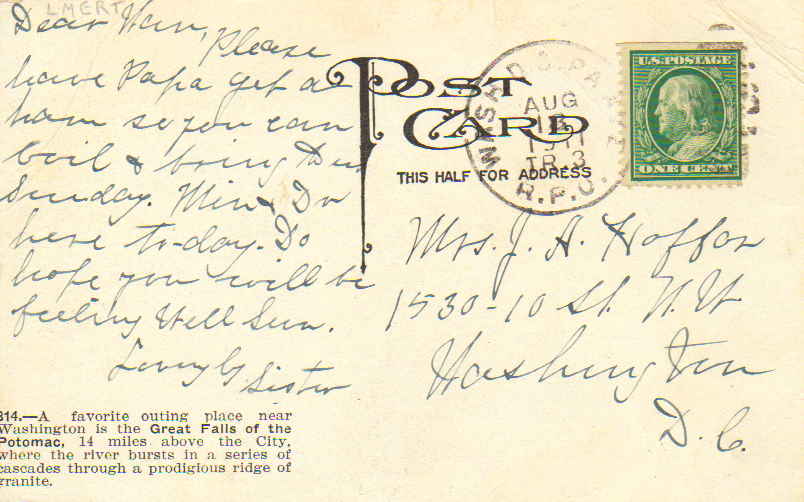 LMERT
Dear
Please
have Papa get a
ham so you can
boil & bring
Sunday. Min &
here to-day. Do
hope you will be
feeling Well Sun.
Lovingly
Sister
814.—A favorite outing place near
Washington is the Great Falls of the
Potomac, 14 miles above the City,
where the river bursts in a series of
cascades through a prodigious ridge of
granite.
POST
CARD
THIS HALF FOR ADDRESS
WASH D.
AUG
1911
TR.3
R.P.O.
U.S. POSTAGE
ONE CENT
Mrs. J. A. Hoffar
1530-10 St. N.W
Washington
D.C.